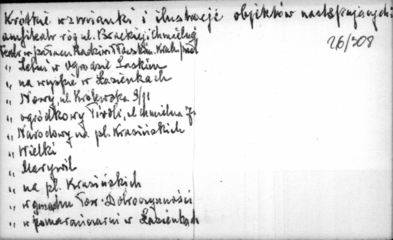 Krótkie wzmianki i ilustracje obiektów następujących:
amfiteatr róg ul. Brackiej i Chmielnej 26/308
Teatr w pałacu Radziwiłłowskim Krak. Przed.
" Letni w Ogrodzie Saskim
" na wyspie w Łazienkach
" Nowy, ul. Królewska 9/11
" ogródkowy Tivoli, ul. Chmielna 7
" Narodowy na pl. Krasińskich
" Wielki
" Marywil
" na pl. Krasińskich
" w gmachu Tow. Dobroczynności
" w pomarańczarni w Łazienkach